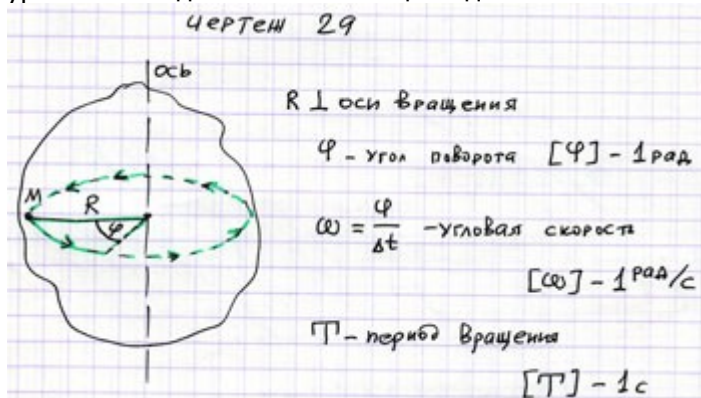 чертеж 29
ось
R ⊥ оси вращения
φ - угол поворота [φ] - 1 рад
M
R
φ
ω = φ/Δt - угловая скорость
[ω] - 1 рад/с
T - период вращения
[T] - 1 с